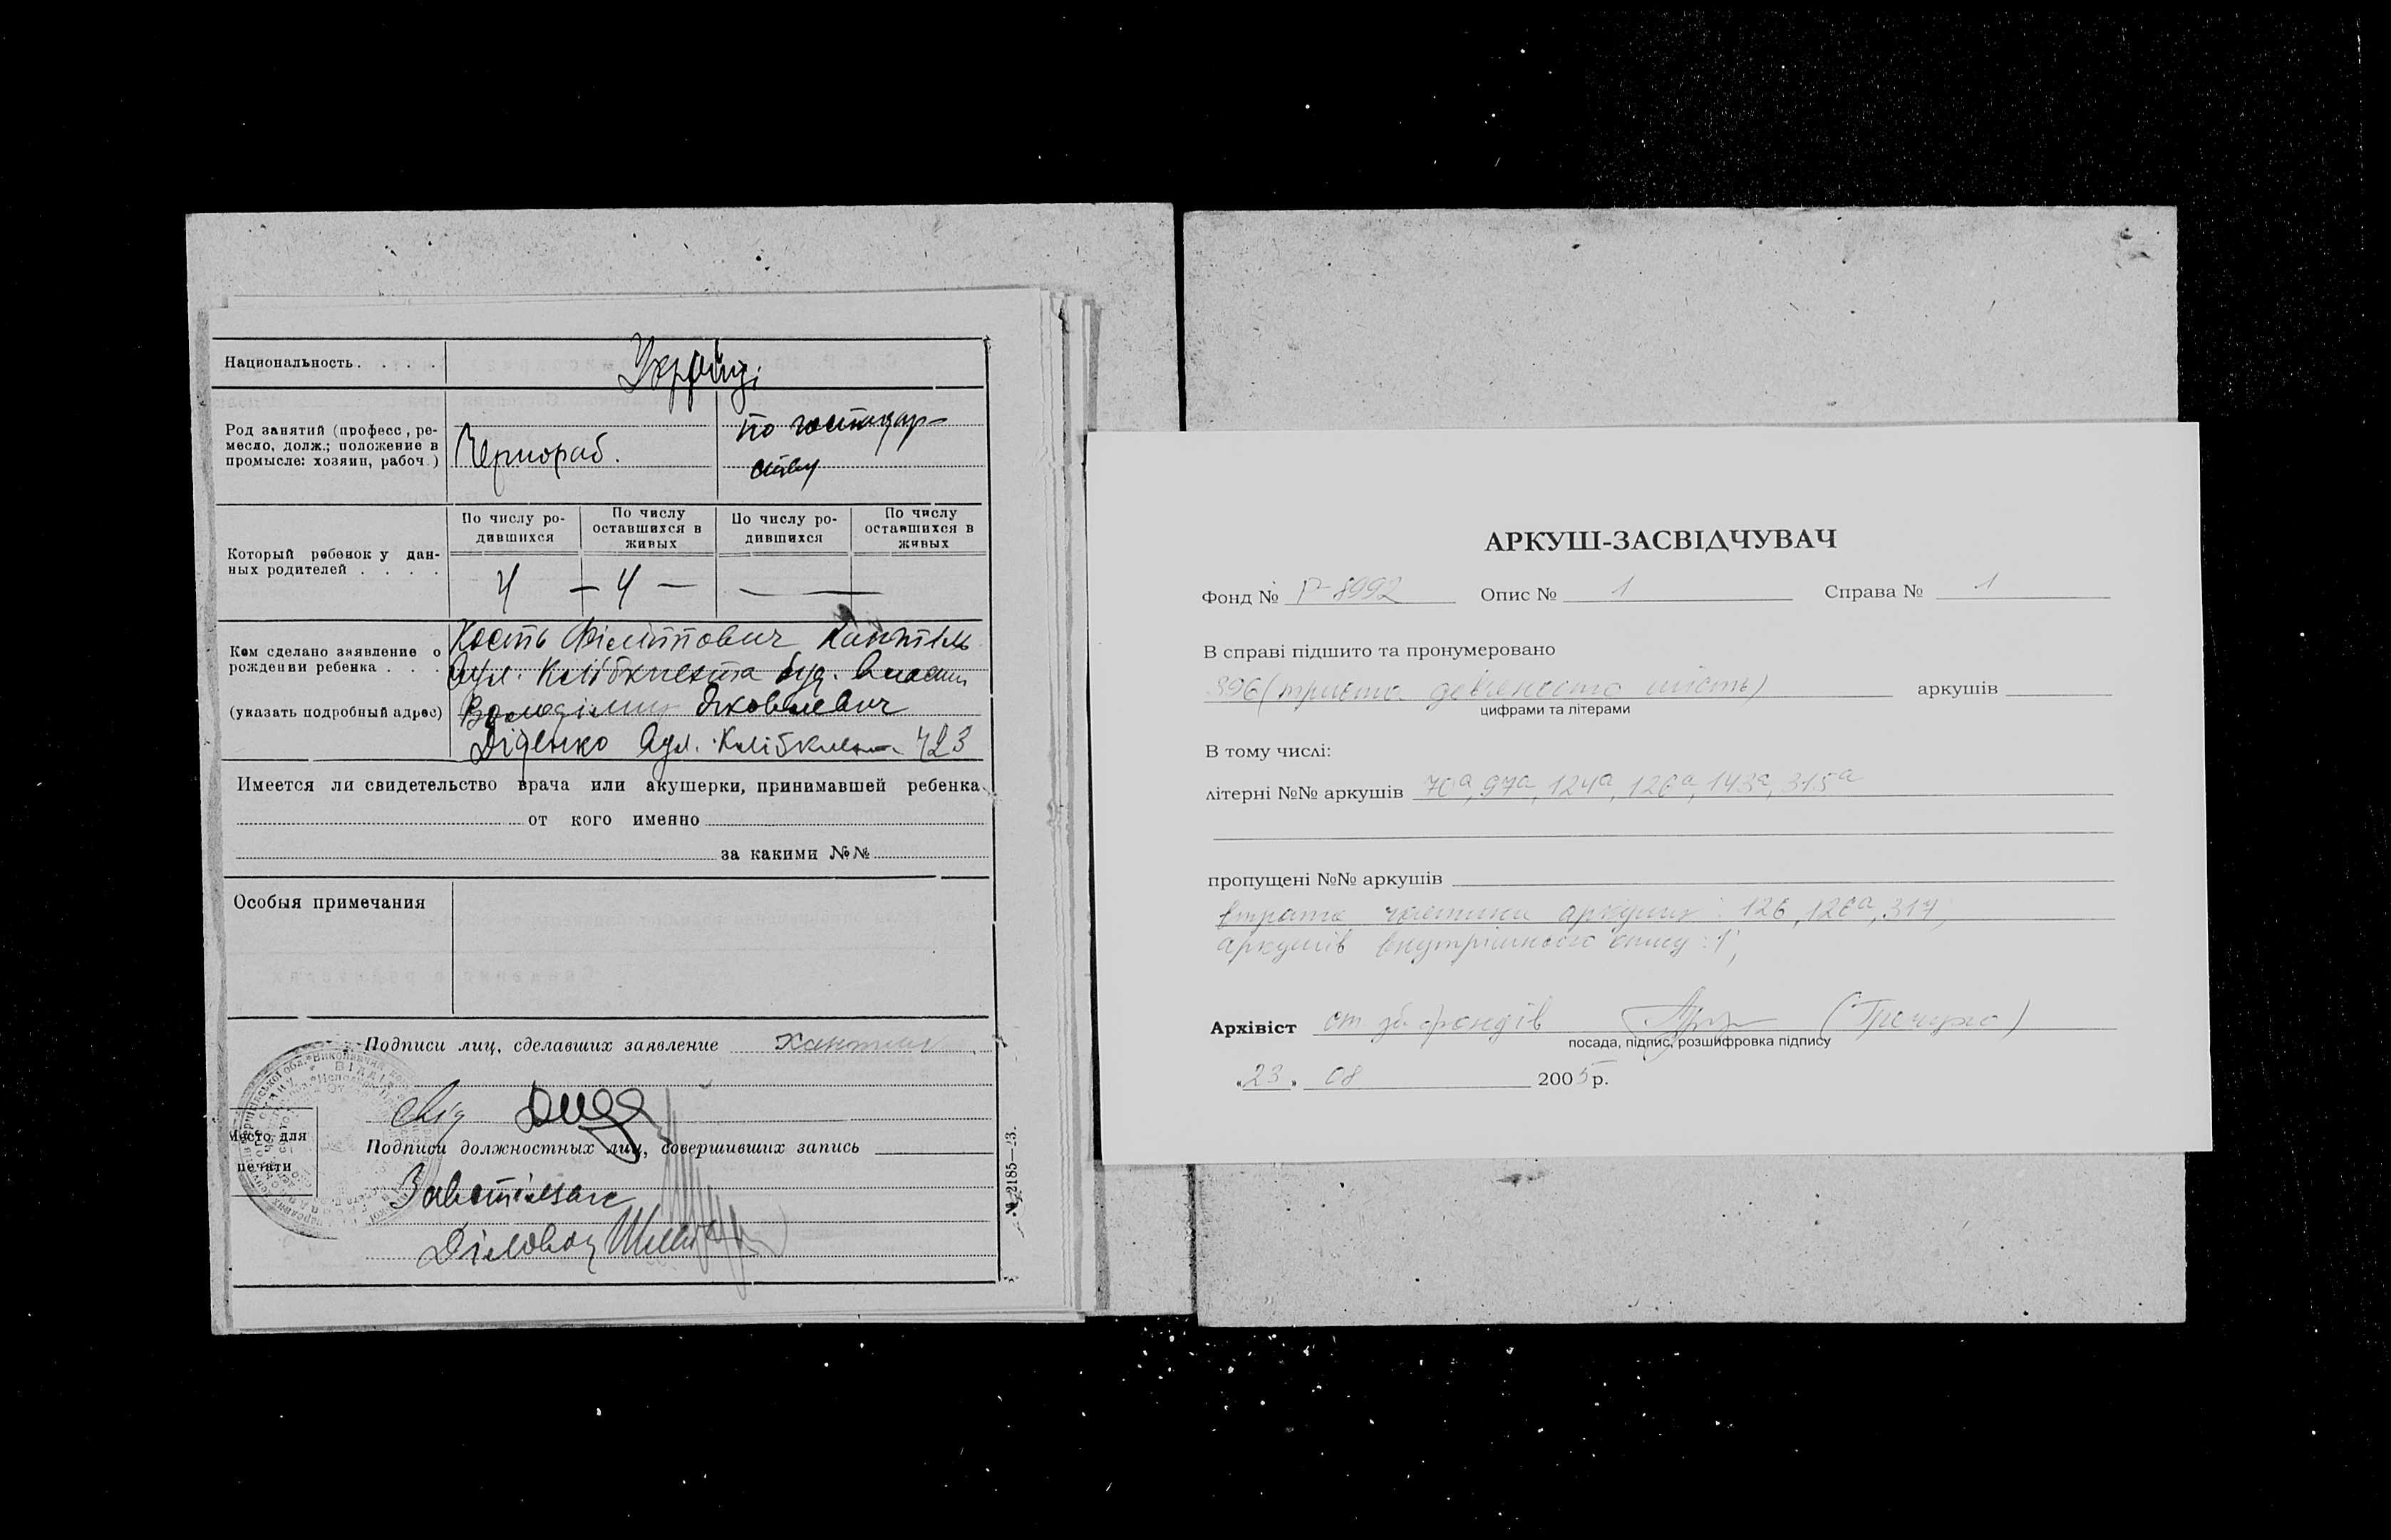 Национальность. . . . . Українці
Род занятий (професс, ре-
месло, долж.; положение в
промысле: хозяин, рабоч.)
Чернораб.
по господар-
ству
Который ребенок у дан-
ных родителей . . . .
По числу ро-
дившихся
По числу
оставшихся в
живых
По числу ро-
дившихся
По числу
оставшихся в
живых
4 — 4 — — —
Кем сделано заявление о
рождении ребенка . . .
(указать подробный адрес)
Кость Філіппович
буд.
Володімир Яковлевич
Діденко 423
Имеется ли свидетельство врача или акушерки, принимавшей ребенка
от кого именно
за какими №№
Особыя примечания
Подписи лиц, сделавших заявление
Место для
печати
Подписи должностных лиц, совершивших запись
Завстолзагс
Діловод
№ 2185—23.
АРКУШ-ЗАСВІДЧУВАЧ
Фонд № Р-8992 Опис № 1 Справа № 1
В справі підшито та пронумеровано
396 (триста девяносто шість) аркушів
цифрами та літерами
В тому числі:
літерні №№ аркушів 70а, 97а, 124а, 126а, 143а, 315а
пропущені №№ аркушів
втрата частини аркуша: 126, 126а, 317,
аркушів внутрішнього опису: 1,
Архівіст ст. зб. фондів
посада, підпис, розшифровка підпису
„23„ 08 2005 р.